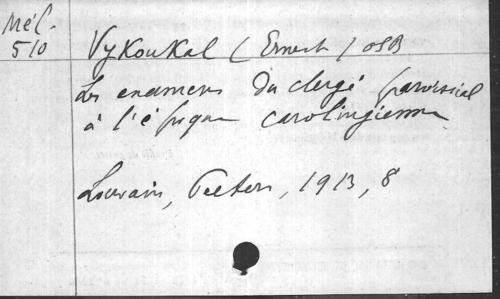 Mél.
510
Vykoukal (Ernest) OSB
Les examens du clergé paroissial
à l'époque carolingienne
Louvain, Peeters, 1913, 8